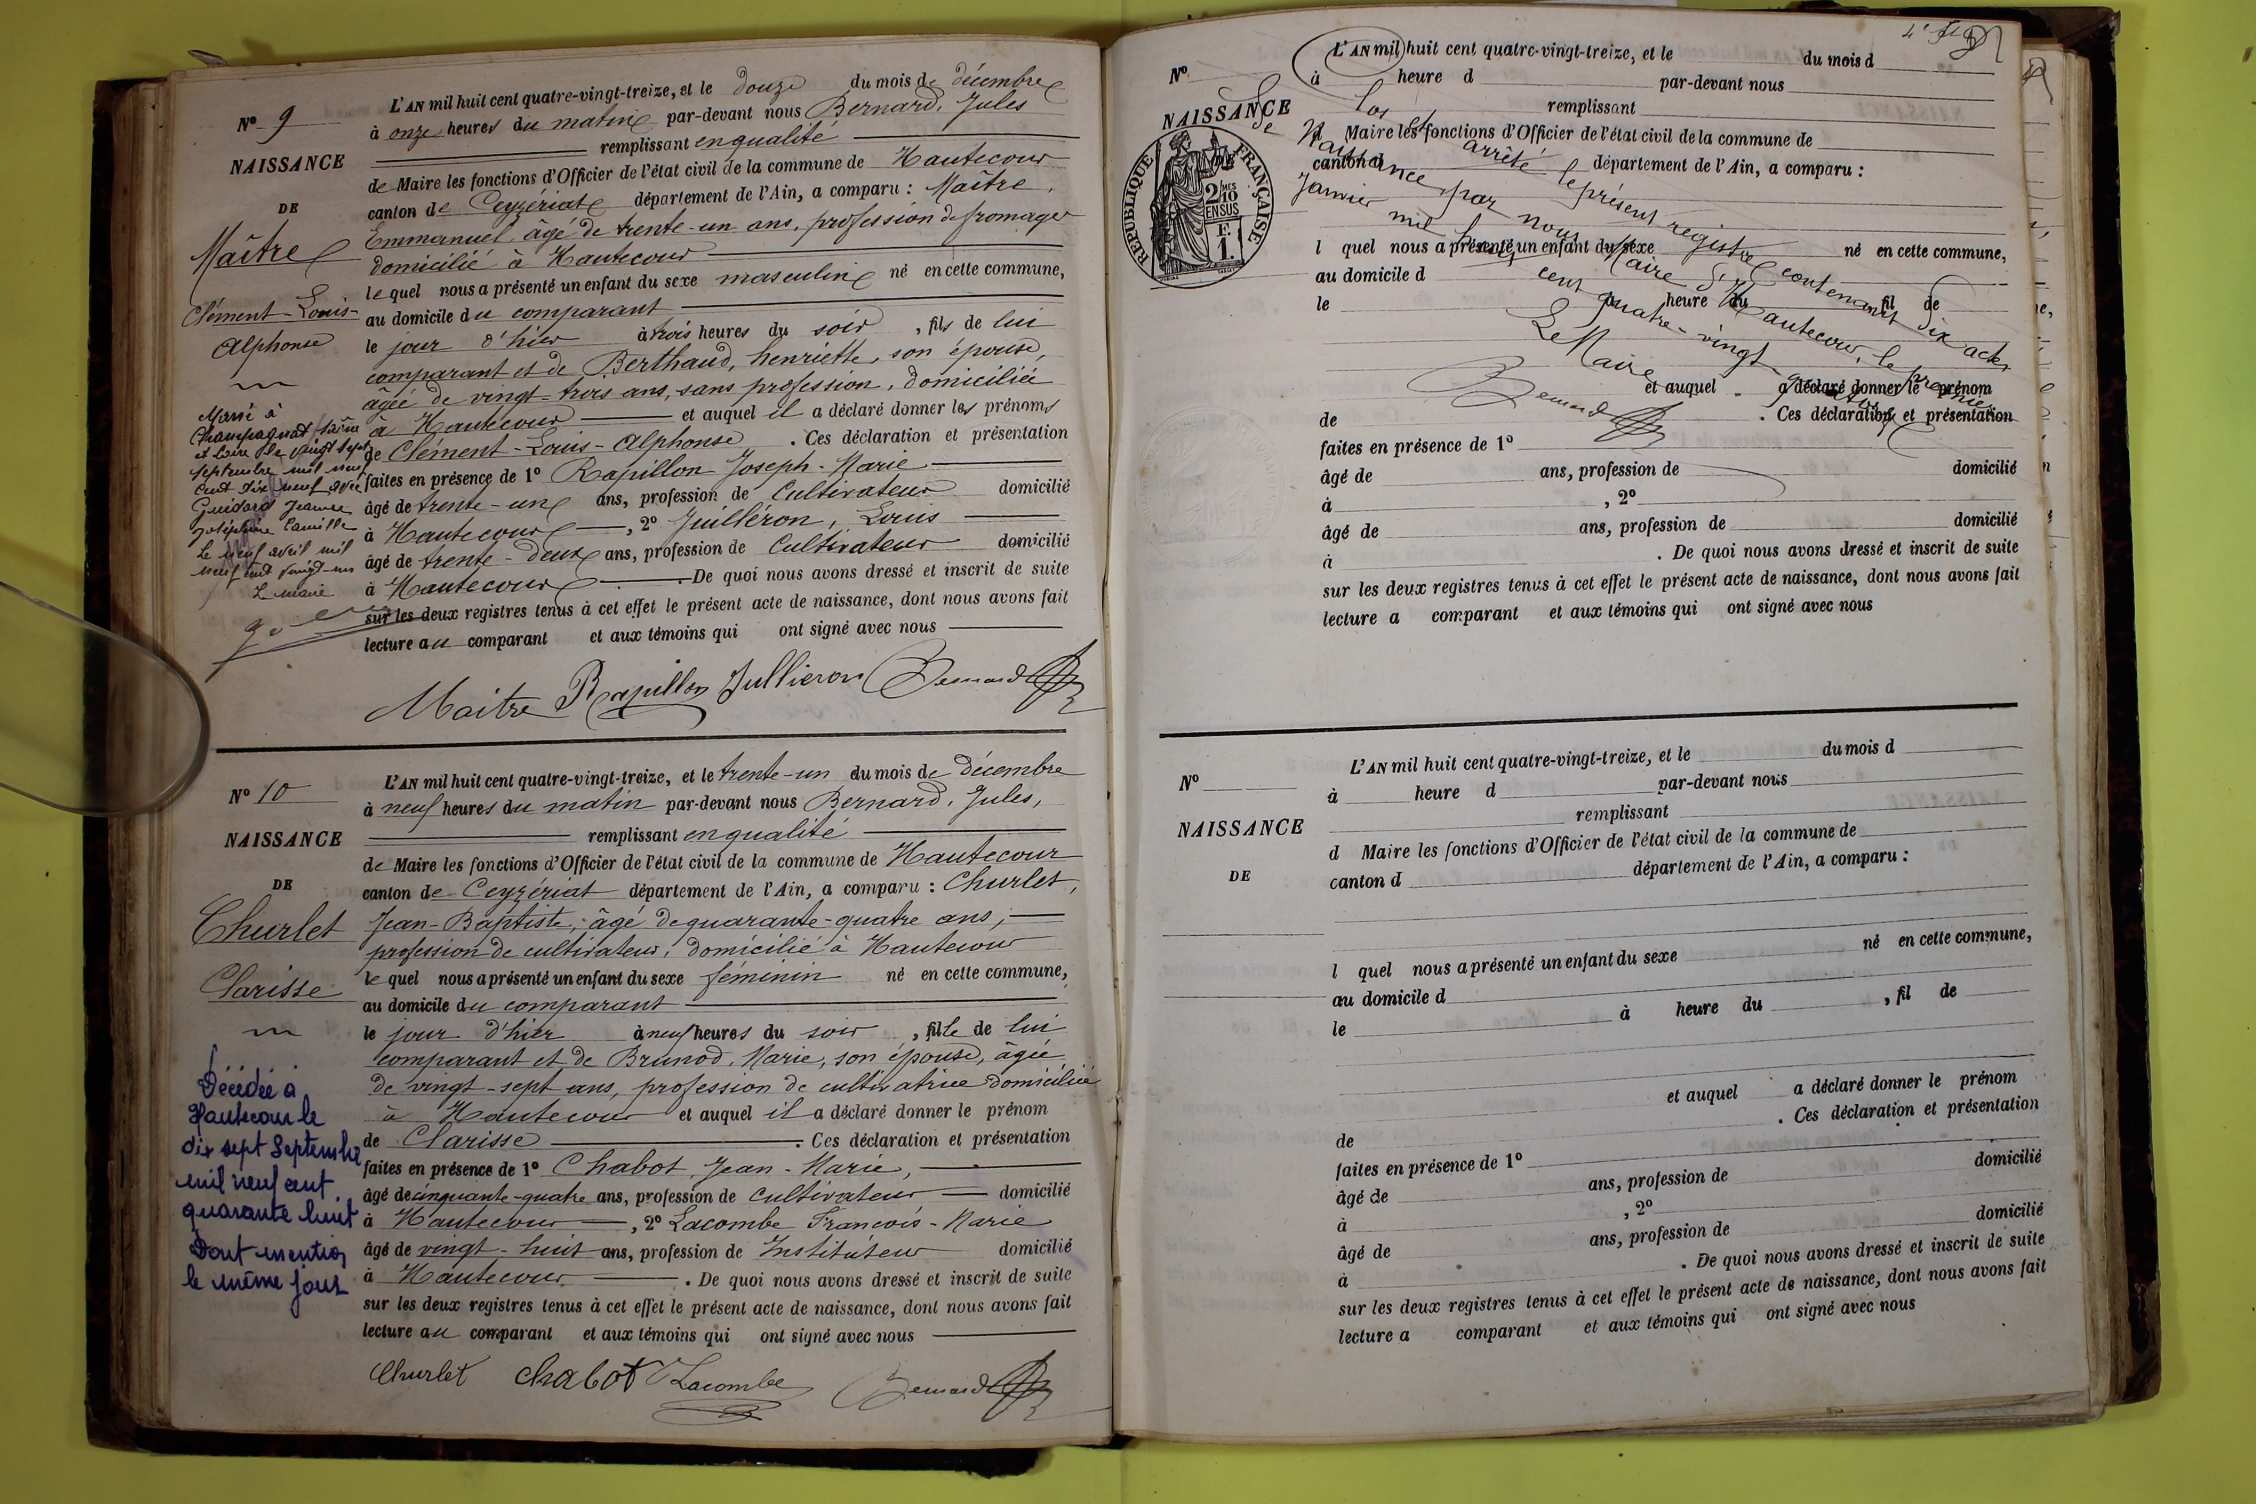 N° 9
NAISSANCE
DE
Maître
Clément-Louis-
Alphonse
Marié à
Champagnat Saône
et Loire le vingt sept
septembre mil neuf
cent dix neuf avec
Guidard Jeanne
Joséphine Camille
Le neuf avril mil
neuf cent vingt-un
L maire
L'AN mil huit cent quatre-vingt-treize, et le douze du mois de décembre
à onze heures du matin par-devant nous Bernard, Jules
remplissant en qualité
de Maire les fonctions d'Officier de l'état civil de la commune de Hautecour
canton de Ceyzériat département de l'Ain, a comparu : Maître,
Emmanuel, âgé de trente-un ans, profession de fromager
domicilié à Hautecour
le quel nous a présenté un enfant du sexe masculin né en cette commune,
au domicile du comparant
le jour d'hier à trois heures du soir, fils de lui
comparant et de Berthaud, henriette, son épouse,
âgée de vingt-trois ans, sans profession, domiciliée
à Hautecour et auquel il a déclaré donner les prénoms
de Clément-Louis-Alphonse . Ces déclaration et présentation
faites en présence de 1° Rapillon Joseph-Marie
âgé de trente-un ans, profession de Cultivateur domicilié
à Hautecour, 2° Juilléron, Louis
âgé de trente-deux ans, profession de Cultivateur domicilié
à Hautecour . De quoi nous avons dressé et inscrit de suite
sur les deux registres tenus à cet effet le présent acte de naissance, dont nous avons fait
lecture au comparant et aux témoins qui ont signé avec nous
Maitre Rapillon Jullieron Bernard
N° 10
NAISSANCE
DE
Churlet
Clarisse
Décédée à
Hautecour le
dix sept Septembre
mil neuf cent
quarante huit
Dont mention
le même jour
L'AN mil huit cent quatre-vingt-treize, et le trente-un du mois de décembre
à neuf heures du matin par-devant nous Bernard, Jules,
remplissant en qualité
de Maire les fonctions d'Officier de l'état civil de la commune de Hautecour
canton de Ceyzériat département de l'Ain, a comparu : Churlet,
Jean-Baptiste, âgé de quarante-quatre ans,
profession de cultivateur, domicilié à Hautecour
le quel nous a présenté un enfant du sexe féminin né en cette commune,
au domicile du comparant
le jour d'hier à neuf heures du soir, fille de lui
comparant et de Brunod, Marie, son épouse, âgée
de vingt-sept ans, profession de cultivatrice domiciliée
à Hautecour et auquel il a déclaré donner le prénom
de Clarisse . Ces déclaration et présentation
faites en présence de 1° Chabot, Jean-Marie,
âgé de cinquante-quatre ans, profession de cultivateur domicilié
à Hautecour, 2° Lacombe François-Marie
âgé de vingt-huit ans, profession de Instituteur domicilié
à Hautecour . De quoi nous avons dressé et inscrit de suite
sur les deux registres tenus à cet effet le présent acte de naissance, dont nous avons fait
lecture au comparant et aux témoins qui ont signé avec nous
Churlet Chabot Lacombe Bernard
N°
NAISSANCE
RÉPUBLIQUE FRANÇAISE
2/10 MES
EN SUS
F.
1.
L'AN mil huit cent quatre-vingt-treize, et le du mois d
à heure d par-devant nous
remplissant
d Maire les fonctions d'Officier de l'état civil de la commune de
canton d département de l'Ain, a comparu :
l quel nous a présenté un enfant du sexe né en cette commune,
au domicile d
le à heure du fil de
et auquel a déclaré donner le prénom
de . Ces déclaration et présentation
faites en présence de 1°
âgé de ans, profession de domicilié
à , 2°
âgé de ans, profession de domicilié
à . De quoi nous avons dressé et inscrit de suite
sur les deux registres tenus à cet effet le présent acte de naissance, dont nous avons fait
lecture a comparant et aux témoins qui ont signé avec nous
Clos et arrêté le présent registre contenant dix actes
de Naissance, par nous Maire d'Hautecour, le premier
Janvier mil huit cent quatre-vingt-quatorze
Le Maire
Bernard
N°
NAISSANCE
DE
L'AN mil huit cent quatre-vingt-treize, et le du mois d
à heure d par-devant nous
remplissant
d Maire les fonctions d'Officier de l'état civil de la commune de
canton d département de l'Ain, a comparu :
l quel nous a présenté un enfant du sexe né en cette commune,
au domicile d
le à heure du , fil de
et auquel a déclaré donner le prénom
de . Ces déclaration et présentation
faites en présence de 1°
âgé de ans, profession de domicilié
à , 2°
âgé de ans, profession de domicilié
à . De quoi nous avons dressé et inscrit de suite
sur les deux registres tenus à cet effet le présent acte de naissance, dont nous avons fait
lecture a comparant et aux témoins qui ont signé avec nous